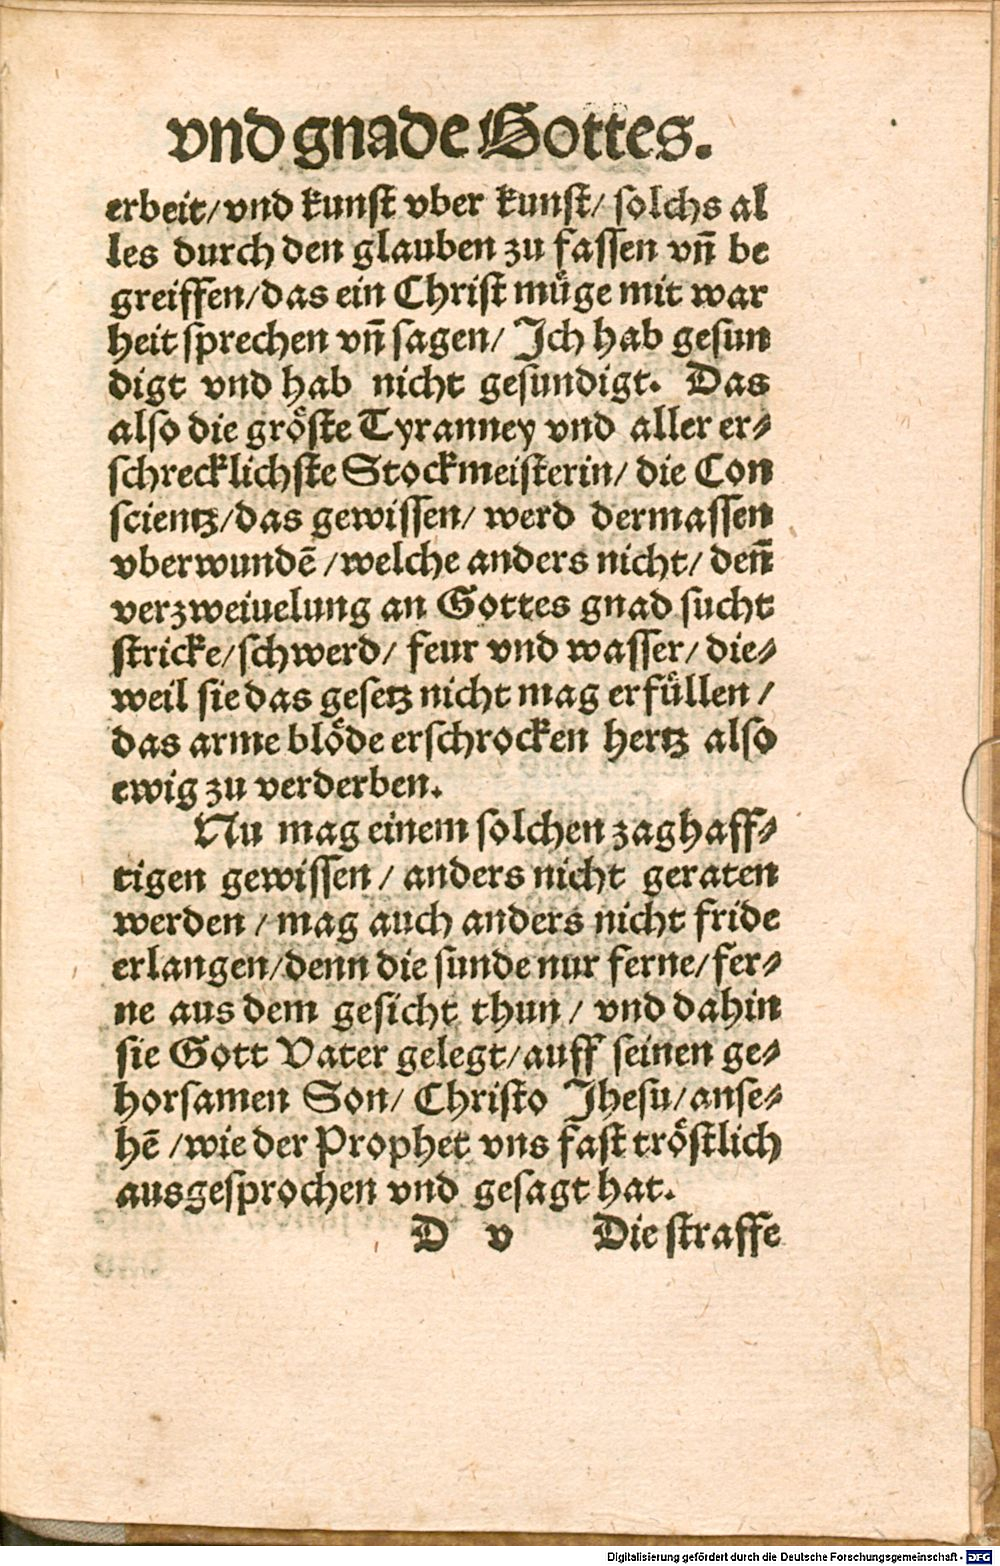 vnd gnade Gottes.
erbeit/vnd kunst vber kunst/ solchs al
les durch den glauben zu fassen vn̄ be
greiffen/das ein Christ müge mit war
heit sprechen vn̄ sagen/ Ich hab gesun
digt vnd hab nicht gesundigt. Das
also die gröste Tyranney vnd aller er⸗
schrecklichste Stockmeisterin/ die Con
scientz/das gewissen/ werd dermassen
vberwundē /welche anders nicht/ den̄
verzweiuelung an Gottes gnad sucht
stricke/schwerd/ feur vnd wasser/ die⸗
weil sie das gesetz nicht mag erfüllen /
das arme blöde erschrocken hertz also
ewig zu verderben.
Nu mag einem solchen zaghaff⸗
tigen gewissen / anders nicht geraten
werden / mag auch anders nicht fride
erlangen/denn die sunde nur ferne/fer⸗
ne aus dem gesicht thun / vnd dahin
sie Gott Vater gelegt/auff seinen ge⸗
horsamen Son/ Christo Jhesu/anse⸗
hē /wie der Prophet vns fast tröstlich
ausgesprochen vnd gesagt hat.
D v Die straffe
Digitalisierung gefördert durch die Deutsche Forschungsgemeinschaft - DFG